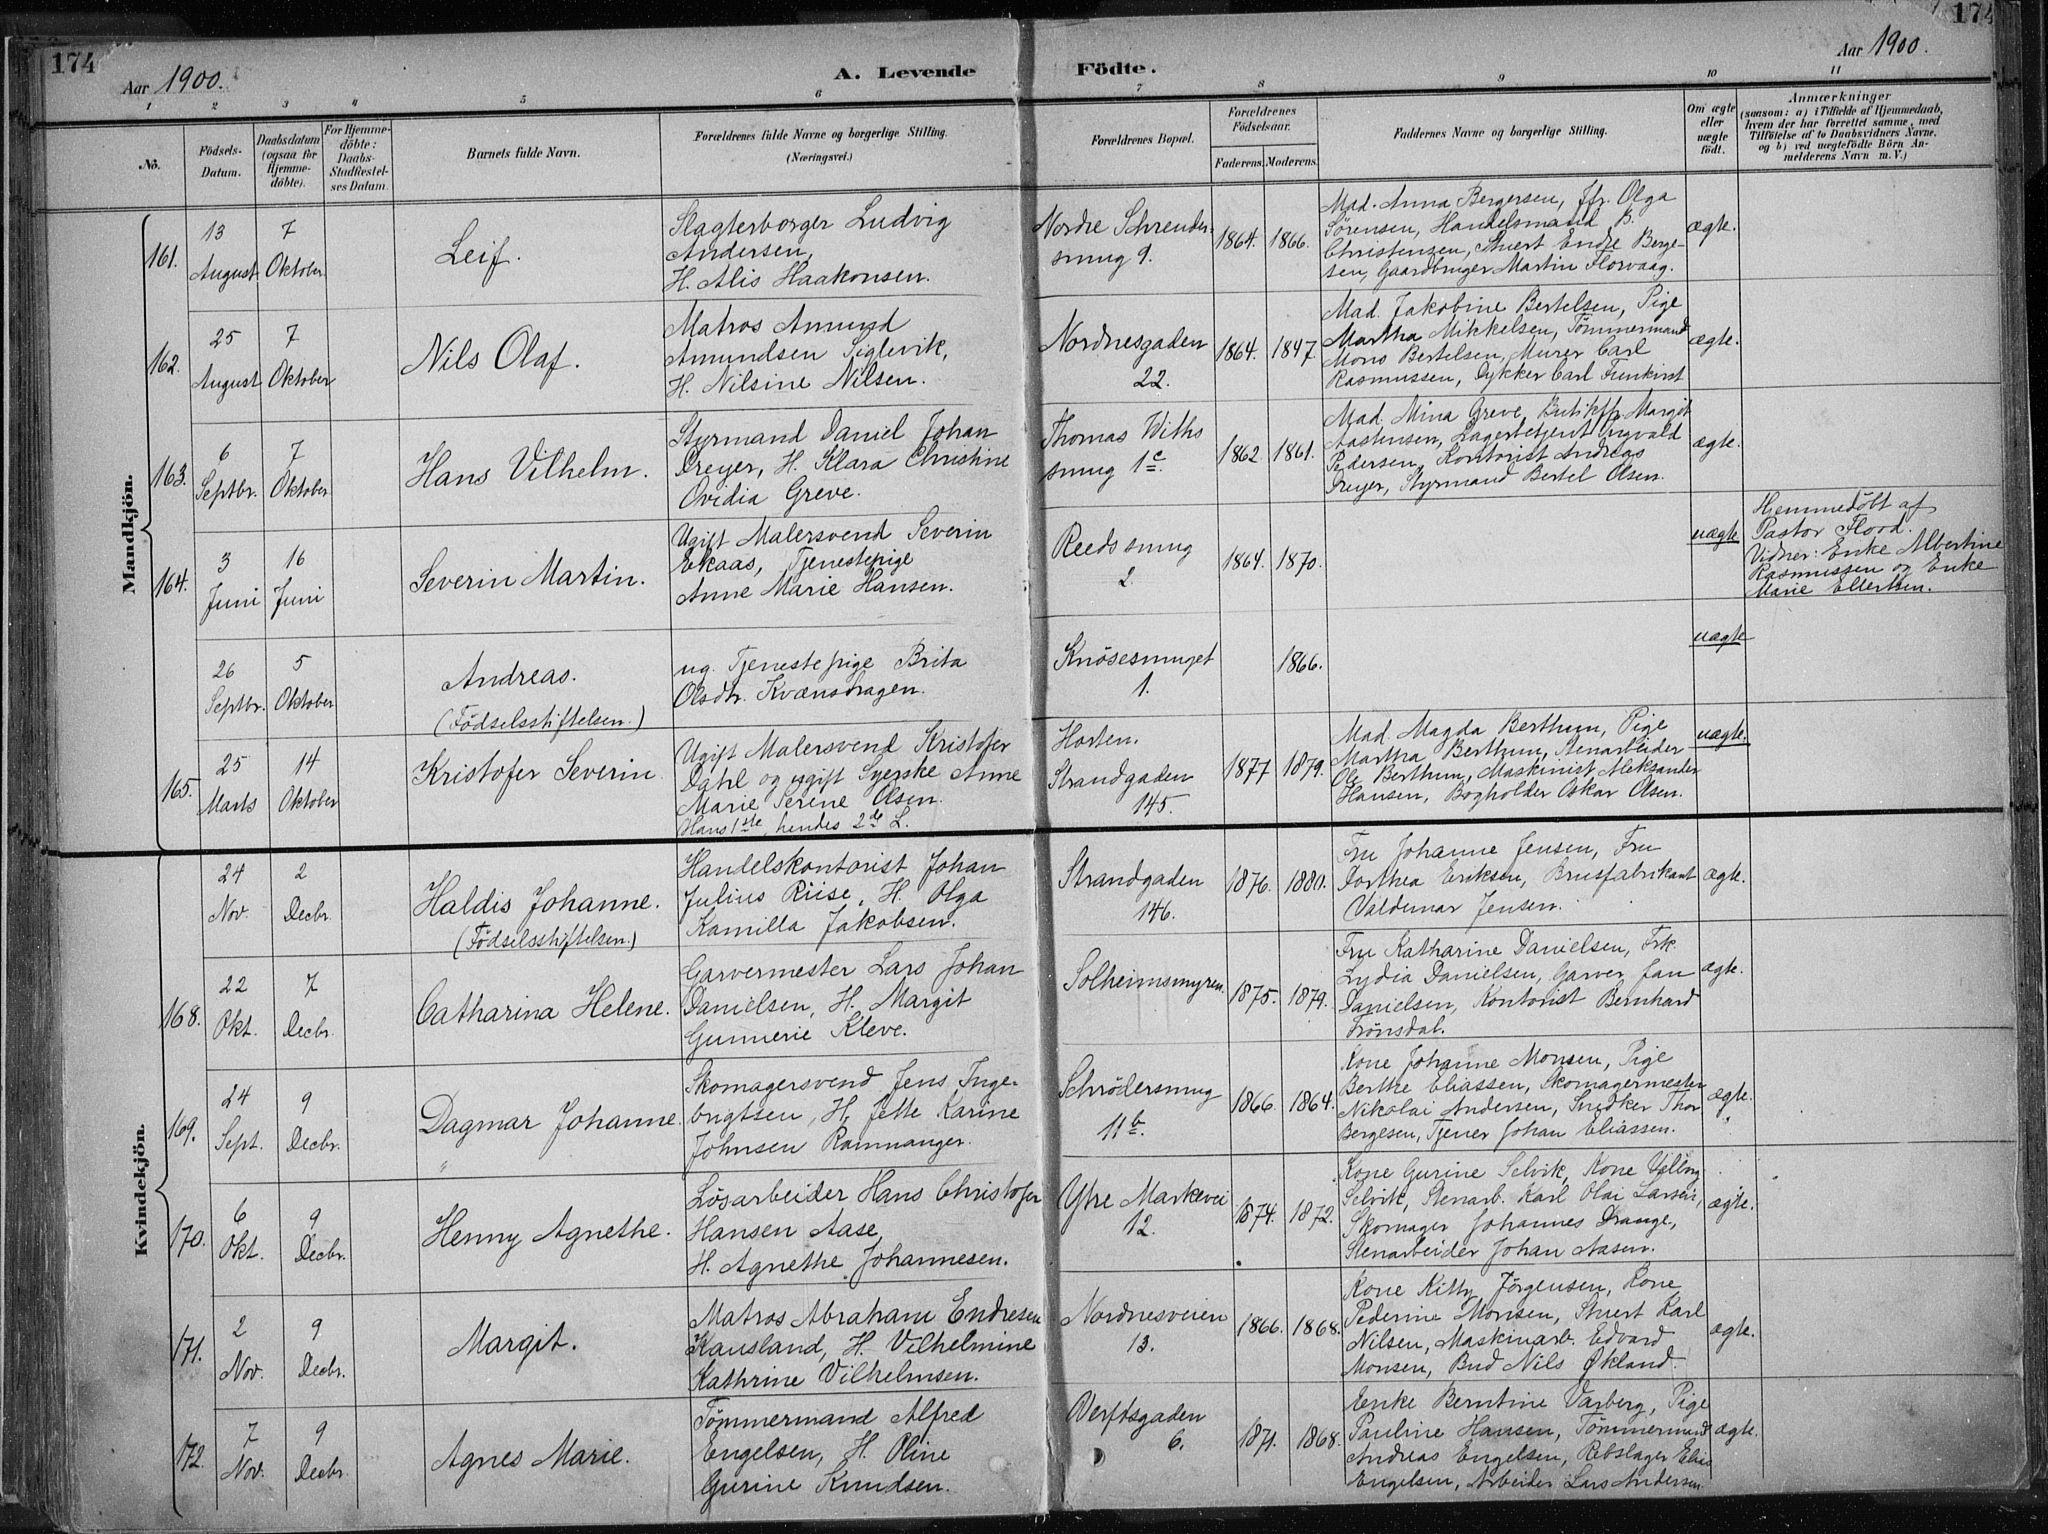 174
174
Aar 1900.
A. Levende
Födte.
Aar 1900.
1 2 3 4 5 6 7 8 9 10 11
No.
Födsels-
Datum.
Daabsdatum
(ogsaa for
Hjemme-
döbte).
For Hjemme-
döbte:
Daabs-
Stadfæstel-
ses Datum.
Barnets fulde Navn.
Forældrenes fulde Navne og borgerlige Stilling.
(Næringsvei.)
Forældrenes Bopæl.
Forældrenes
Födselsaar.
Faderens.
Moderens.
Faddernes Navne og borgerlige Stilling.
Om ægte
eller
uægte
födt.
Anmærkninger
(saasom: a) i Tilfælde af Hjemmedaab,
hvem der har forrettet samme, med
Tilföielse af to Daabsvidners Navne,
og b) ved uægtefödte Börn An-
melderens Navn m. V.)
Mandkjön.
161.
13
August
7
Oktober
Leif.
Slagterborger Ludvig
Andersen,
H. Alis Haakonsen.
Nordre Schreuder-
smug 9.
1864.
1866.
Mad. Anna Bergersen, Jfr. Olga
Sörensen, Handelsmand B.
Christensen, Stuert Endre Berge-
sen, Gaardbruger Martin Florvaag.
ægte.
162.
25
August
7
Oktober
Nils Olaf.
Matros Amund
Amundsen Siglevik,
H. Nilsine Nilsen.
Nordnesgaden
22.
1864.
1847.
Mad. Jakobine Bertelsen, Pige
Martha Mikkelsen, Tömmermand
Mons Bertelsen, Murer Carl
Rasmussen, Dykker Carl
ægte.
163.
6
Septbr.
7
Oktober
Hans Vilhelm.
Styrmand Daniel Johan
Dreyer, H. Klara Christine
Ovidia Greve.
Thomas Withs
smug 1c.
1862.
1861.
Mad. Mina Greve, Butikjfr. Margit
Aastensen, Lagerbetjent Ingvald
Pedersen, Kontorist Andreas
Dreyer, Styrmand Bertel Olsen.
ægte.
164.
3
Juni
16
Juni
Severin Martin.
Ugift Malersvend Severin
Ekaas, Tjenestepige
Anne Marie Hansen.
Reedssmug
2.
1864.
1870.
uægte
Hjemmedöbt af
Pastor Flood.
Vidner: Enke Albertine
Rasmussen og Enke
Marie Ellertsen.
26
Septbr.
5
Oktober
Andreas.
(Födselsstiftelsen.)
ug. Tjenestepige Brita
Olsdtr. Kvænsdragen.
Knösesmuget
1.
1866.
uægte
165.
25
Marts
14
Oktober
Kristofer Severin.
Ugift Malersvend Kristofer
Dahl og ugift Syerske Anne
Marie Serine Olsen.
Hans 1ste hendes 2de L.
Horten.
Strandgaden
145.
1877
1879.
Mad. Magda Berthum, Pige
Martha Berthum, Stenarbeider
Ole Berthum, Maskinist Aleksander
Hansen, Bogholder Oskar Olsen.
uægte.
Kvindekjön.
24
Nov.
2
Decbr.
Haldis Johanne.
(Födselsstiftelsen.)
Handelskontorist Johan
Julius Riise, H. Olga
Kamilla Jakobsen.
Strandgaden
146.
1876.
1880.
Fru Johanne Jensen, Fru
Dorthea Eriksen, Brusfabrikant
Valdemar Jensen.
ægte.
168.
22
Okt.
7
Decbr.
Catharina Helene.
Garvermester Lars Johan
Danielsen, H. Margit
Gunnerie Kleve.
Solheimsmyren.
1875.
1879.
Fru Katharine Danielsen, Frk.
Lydia Danielsen, Garver Jan
Danielsen, Kontorist Bernhard
Frönsdal.
ægte.
169.
24
Sept.
9
Decbr.
Dagmar Johanne.
Skomagersvend Jens Inge-
brigtsen, H. Jette Karine
Johnsen Ramnanger.
Schrödersmug
11b.
1866.
1864.
Kone Johanne Monsen, Pige
Berthe Eliassen, Skomagermester
Nikolai Andersen, Snedker Thor
Bergesen, Tjener Johan Eliassen.
ægte.
170.
6
Okt.
9
Decbr.
Henny Agnethe.
Lösarbeider Hans Christofer
Hansen Aase,
H. Agnethe Johannesen.
Ytre Markevei
12.
1874.
1872.
Kone Gurine Selvik, Kone Valborg
Selvik, Stenarb. Karl Olai Larsen,
Skomager Johannes Drange,
Stenarbeider Johan Aasen.
ægte.
171.
2
Nov.
9
Decbr.
Margit.
Matros Abraham Endresen
Kausland, H. Vilhelmine
Kathrine Vilhelmsen.
Nordnesveien
13.
1866.
1868.
Kone Kitty Jörgensen, Kone
Pederine Monsen, Stuert Karl
Nilsen, Maskinarb. Edvard
Monsen, Bud Nils Økland.
ægte.
172.
7
Nov.
9
Decbr.
Agnes Marie.
Tömmermand Alfred
Engelsen, H. Oline
Gurine Knudsen.
Verftsgaden
6.
1871.
1868.
Enke Berntine Varberg, Pige
Pauline Hansen, Tömmermand
Andreas Engelsen, Rebslager Elias
Engelsen, Arbeider Lars Andersen.
ægte.